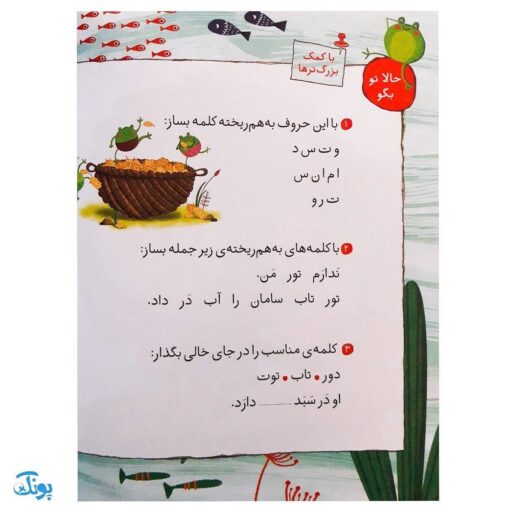 با کمک
بزرگ‌ترها
حالا تو
بگو
۱ با این حروف به‌هم‌ریخته کلمه بساز:
و ت س د
ا م ا ن س
ت ر و
۲ با کلمه‌های به‌هم‌ریخته‌ی زیر جمله بساز:
نَدارَم تور مَن.
تور تاب سامان را آب دَر داد.
۳ کلمه‌ی مناسب را در جای خالی بگذار:
دور • تاب • توت
او دَر سَبَد ............ دارَد.
پونک